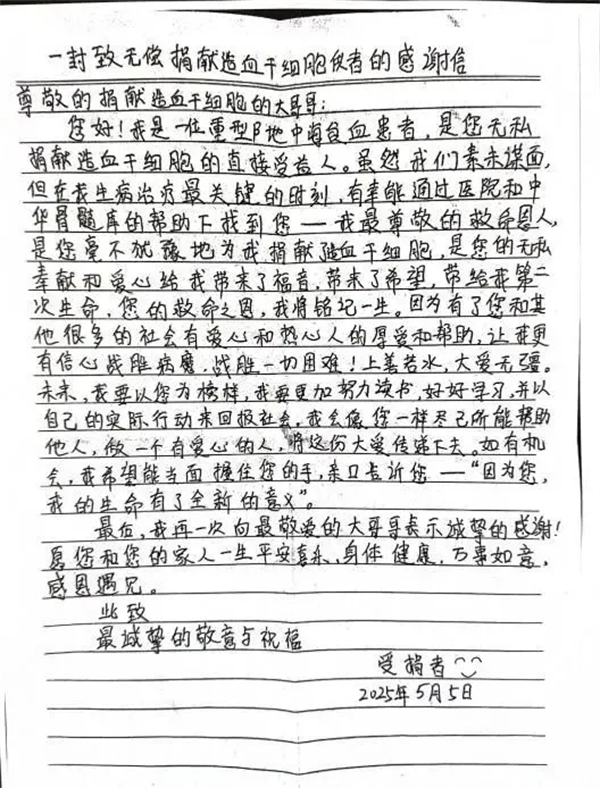 一封致无偿捐献造血干细胞使者的感谢信
尊敬的捐献造血干细胞的大哥哥：
您好！我是一位重型β地中海贫血患者，是您无私
捐献造血干细胞的直接受益人。虽然我们素未谋面，
但在我生病治疗最关键的时刻，有幸能通过医院和中
华骨髓库的帮助下找到您——我最尊敬的救命恩人，
是您毫不犹豫地为我捐献造血干细胞，是您的无私
奉献和爱心给我带来了福音，带来了希望，带给我第二
次生命，您的救命之恩，我将铭记一生。因为有了您和其
他很多的社会有爱心和热心人的厚爱和帮助，让我更
有信心战胜病魔，战胜一切困难！上善若水，大爱无疆。
未来，我要以您为榜样，我要更加努力读书，好好学习，并以
自己的实际行动来回报社会，我会像您一样尽己所能帮助
他人，做一个有爱心的人，将这份大爱传递下去。如有机
会，我希望能当面握住您的手，亲口告诉您——“因为您，
我的生命有了全新的意义”。
最后，我再一次向最敬爱的大哥哥表示诚挚的感谢！
愿您和您的家人一生平安喜乐，身体健康，万事如意，
感恩遇见。
此致
最诚挚的敬意与祝福
受捐者
2025年5月5日